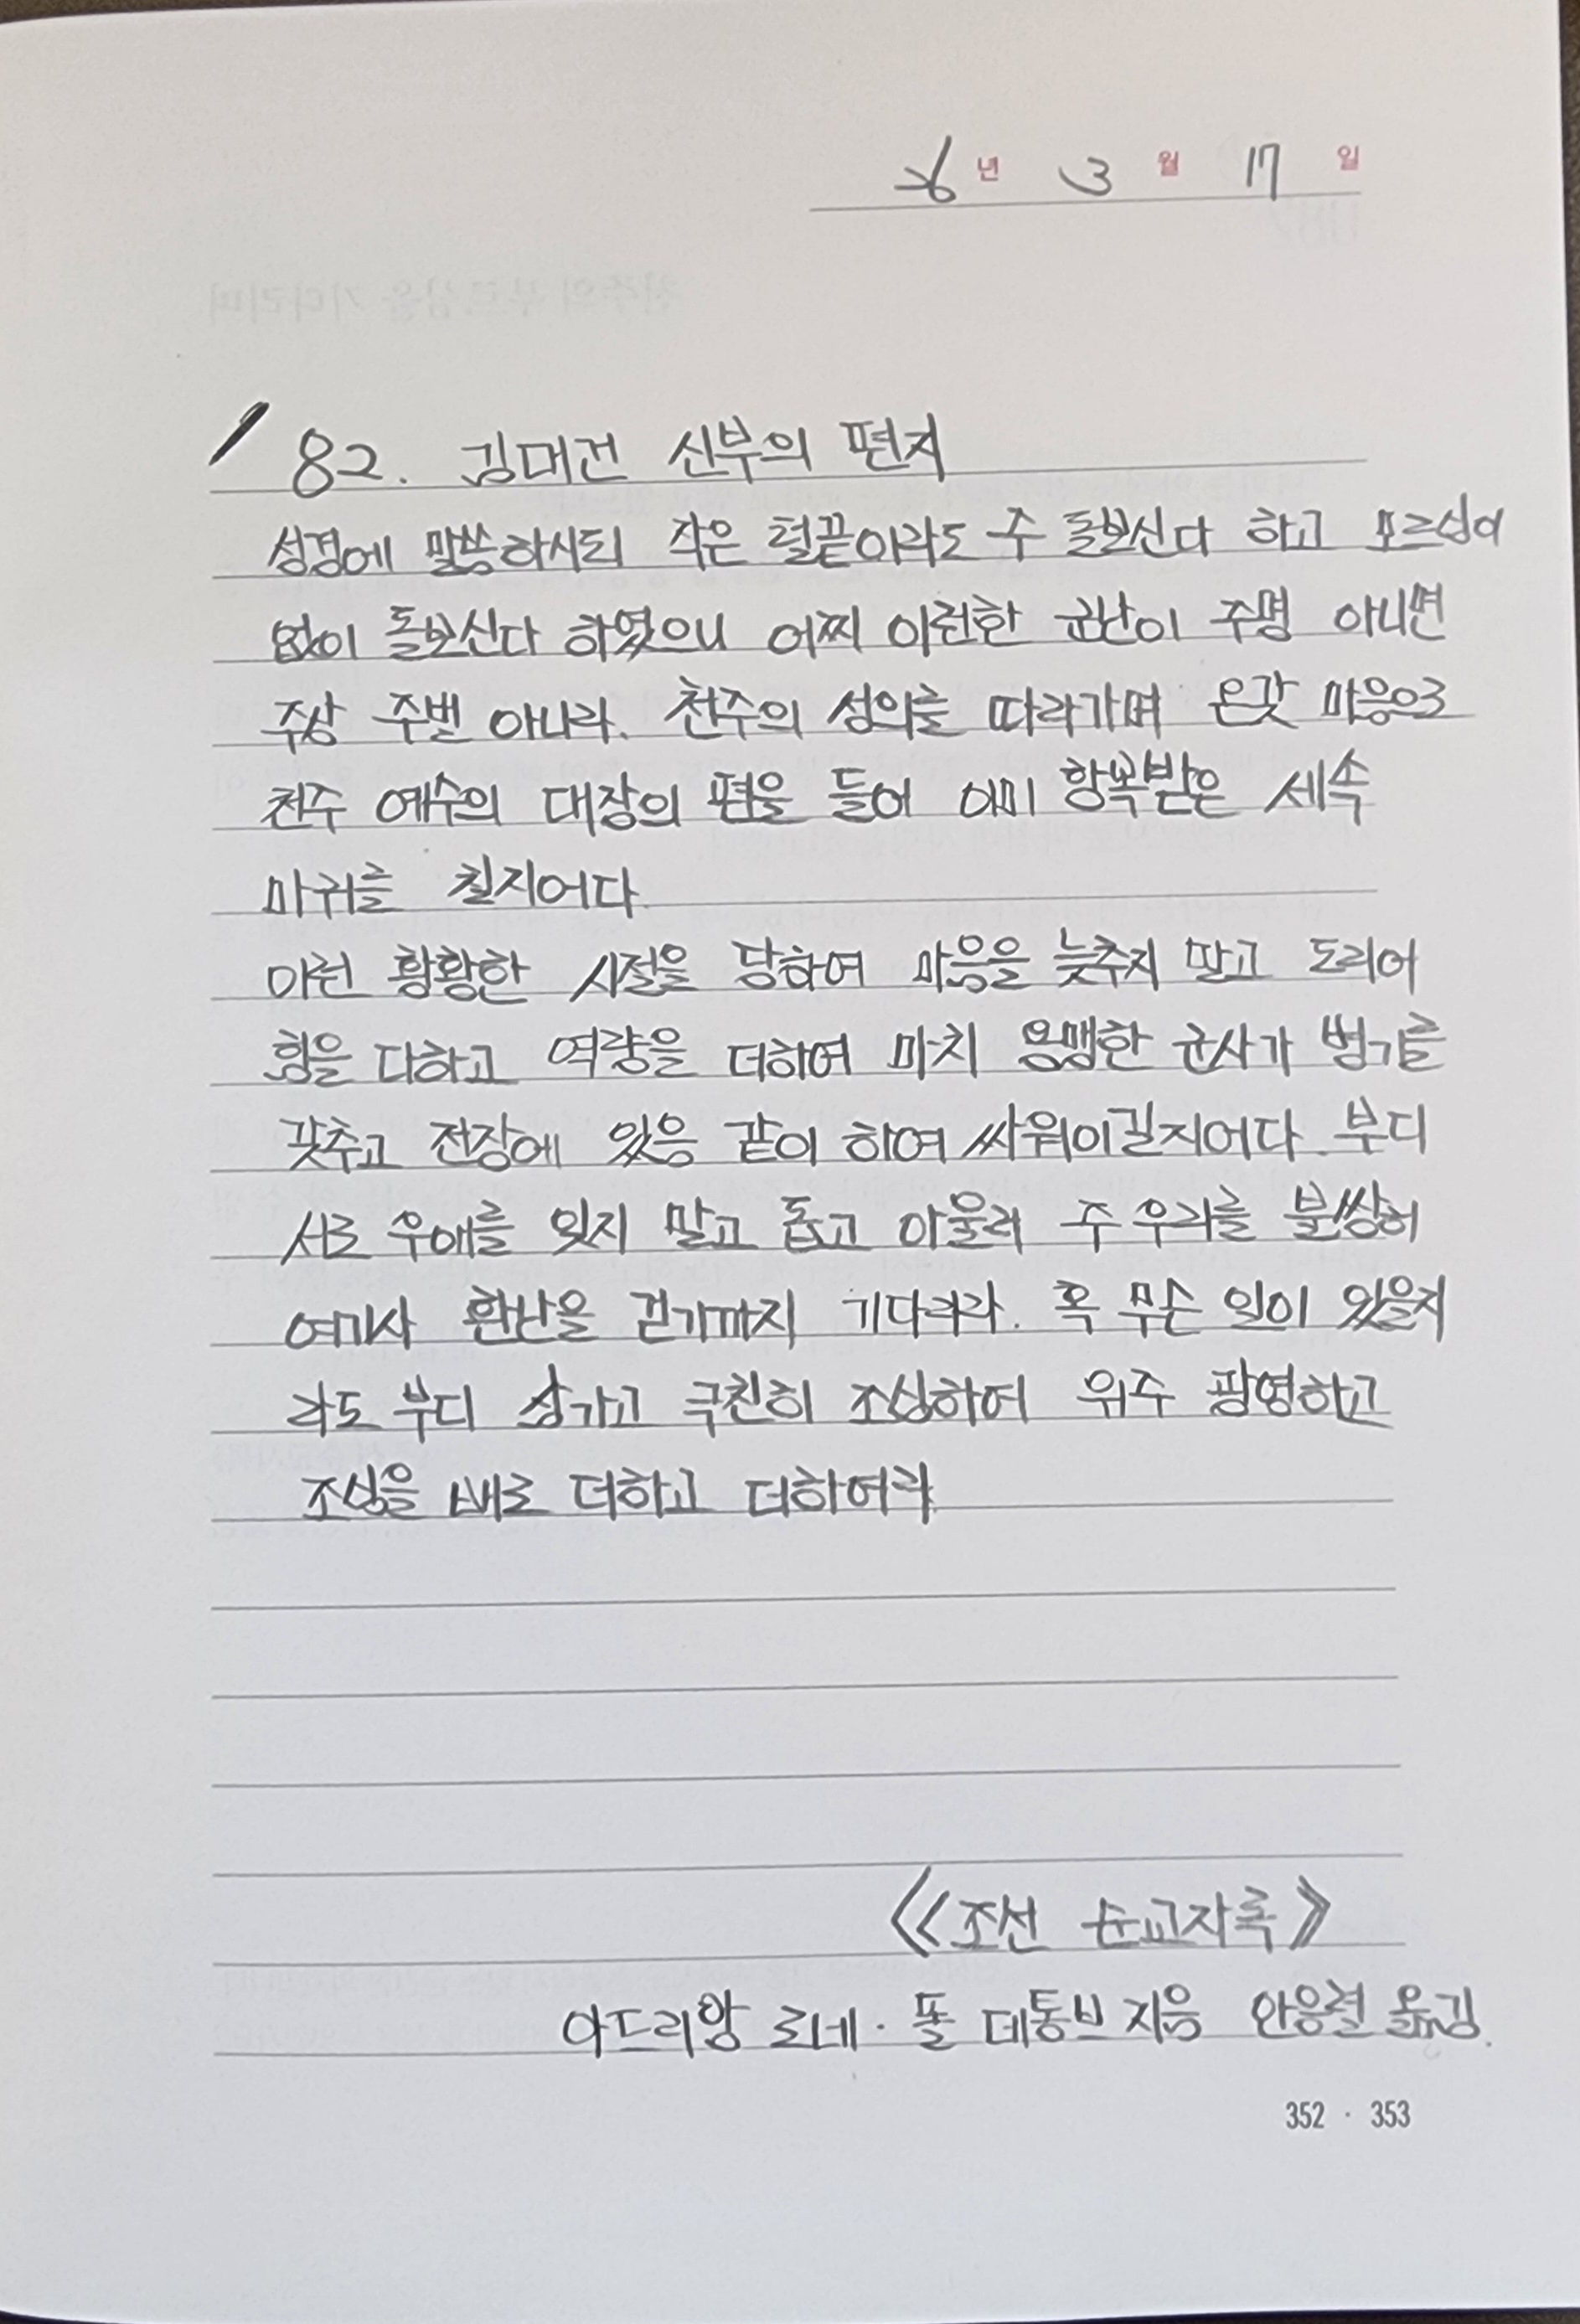 26년 3월 17일
82. 김대건 신부의 편지
성경에 말씀하시되 작은 털끝이라도 주 돌보신다 하고 모르심이
없이 돌보신다 하였으니 어찌 이런한 군난이 주명 아니면
주상 주벌 아니랴. 천주의 성의를 따라가며 온갖 마음으로
천주 예수의 대장의 편을 들어 이미 항복받은 세속
마귀를 칠지어다.
이런 황황한 시절을 당하여 마음을 늦추지 말고 도리어
힘을 다하고 역량을 더하여 마치 용맹한 군사가 병기를
갖추고 전장에 있음 같이 하여 싸워이길지어다. 부디
서로 우애를 잊지 말고 돕고 아울러 주 우리를 불쌍히
여기사 환난을 걷기까지 기다려라. 혹 무슨 일이 있을지
라도 부디 삼가고 극진히 조심하여 위주 광영하고
조심을 배로 더하고 더하여라.
《조선 순교자록》
아드리앙 로네·폴 데통브 지음 안응렬 옮김.
352 · 353